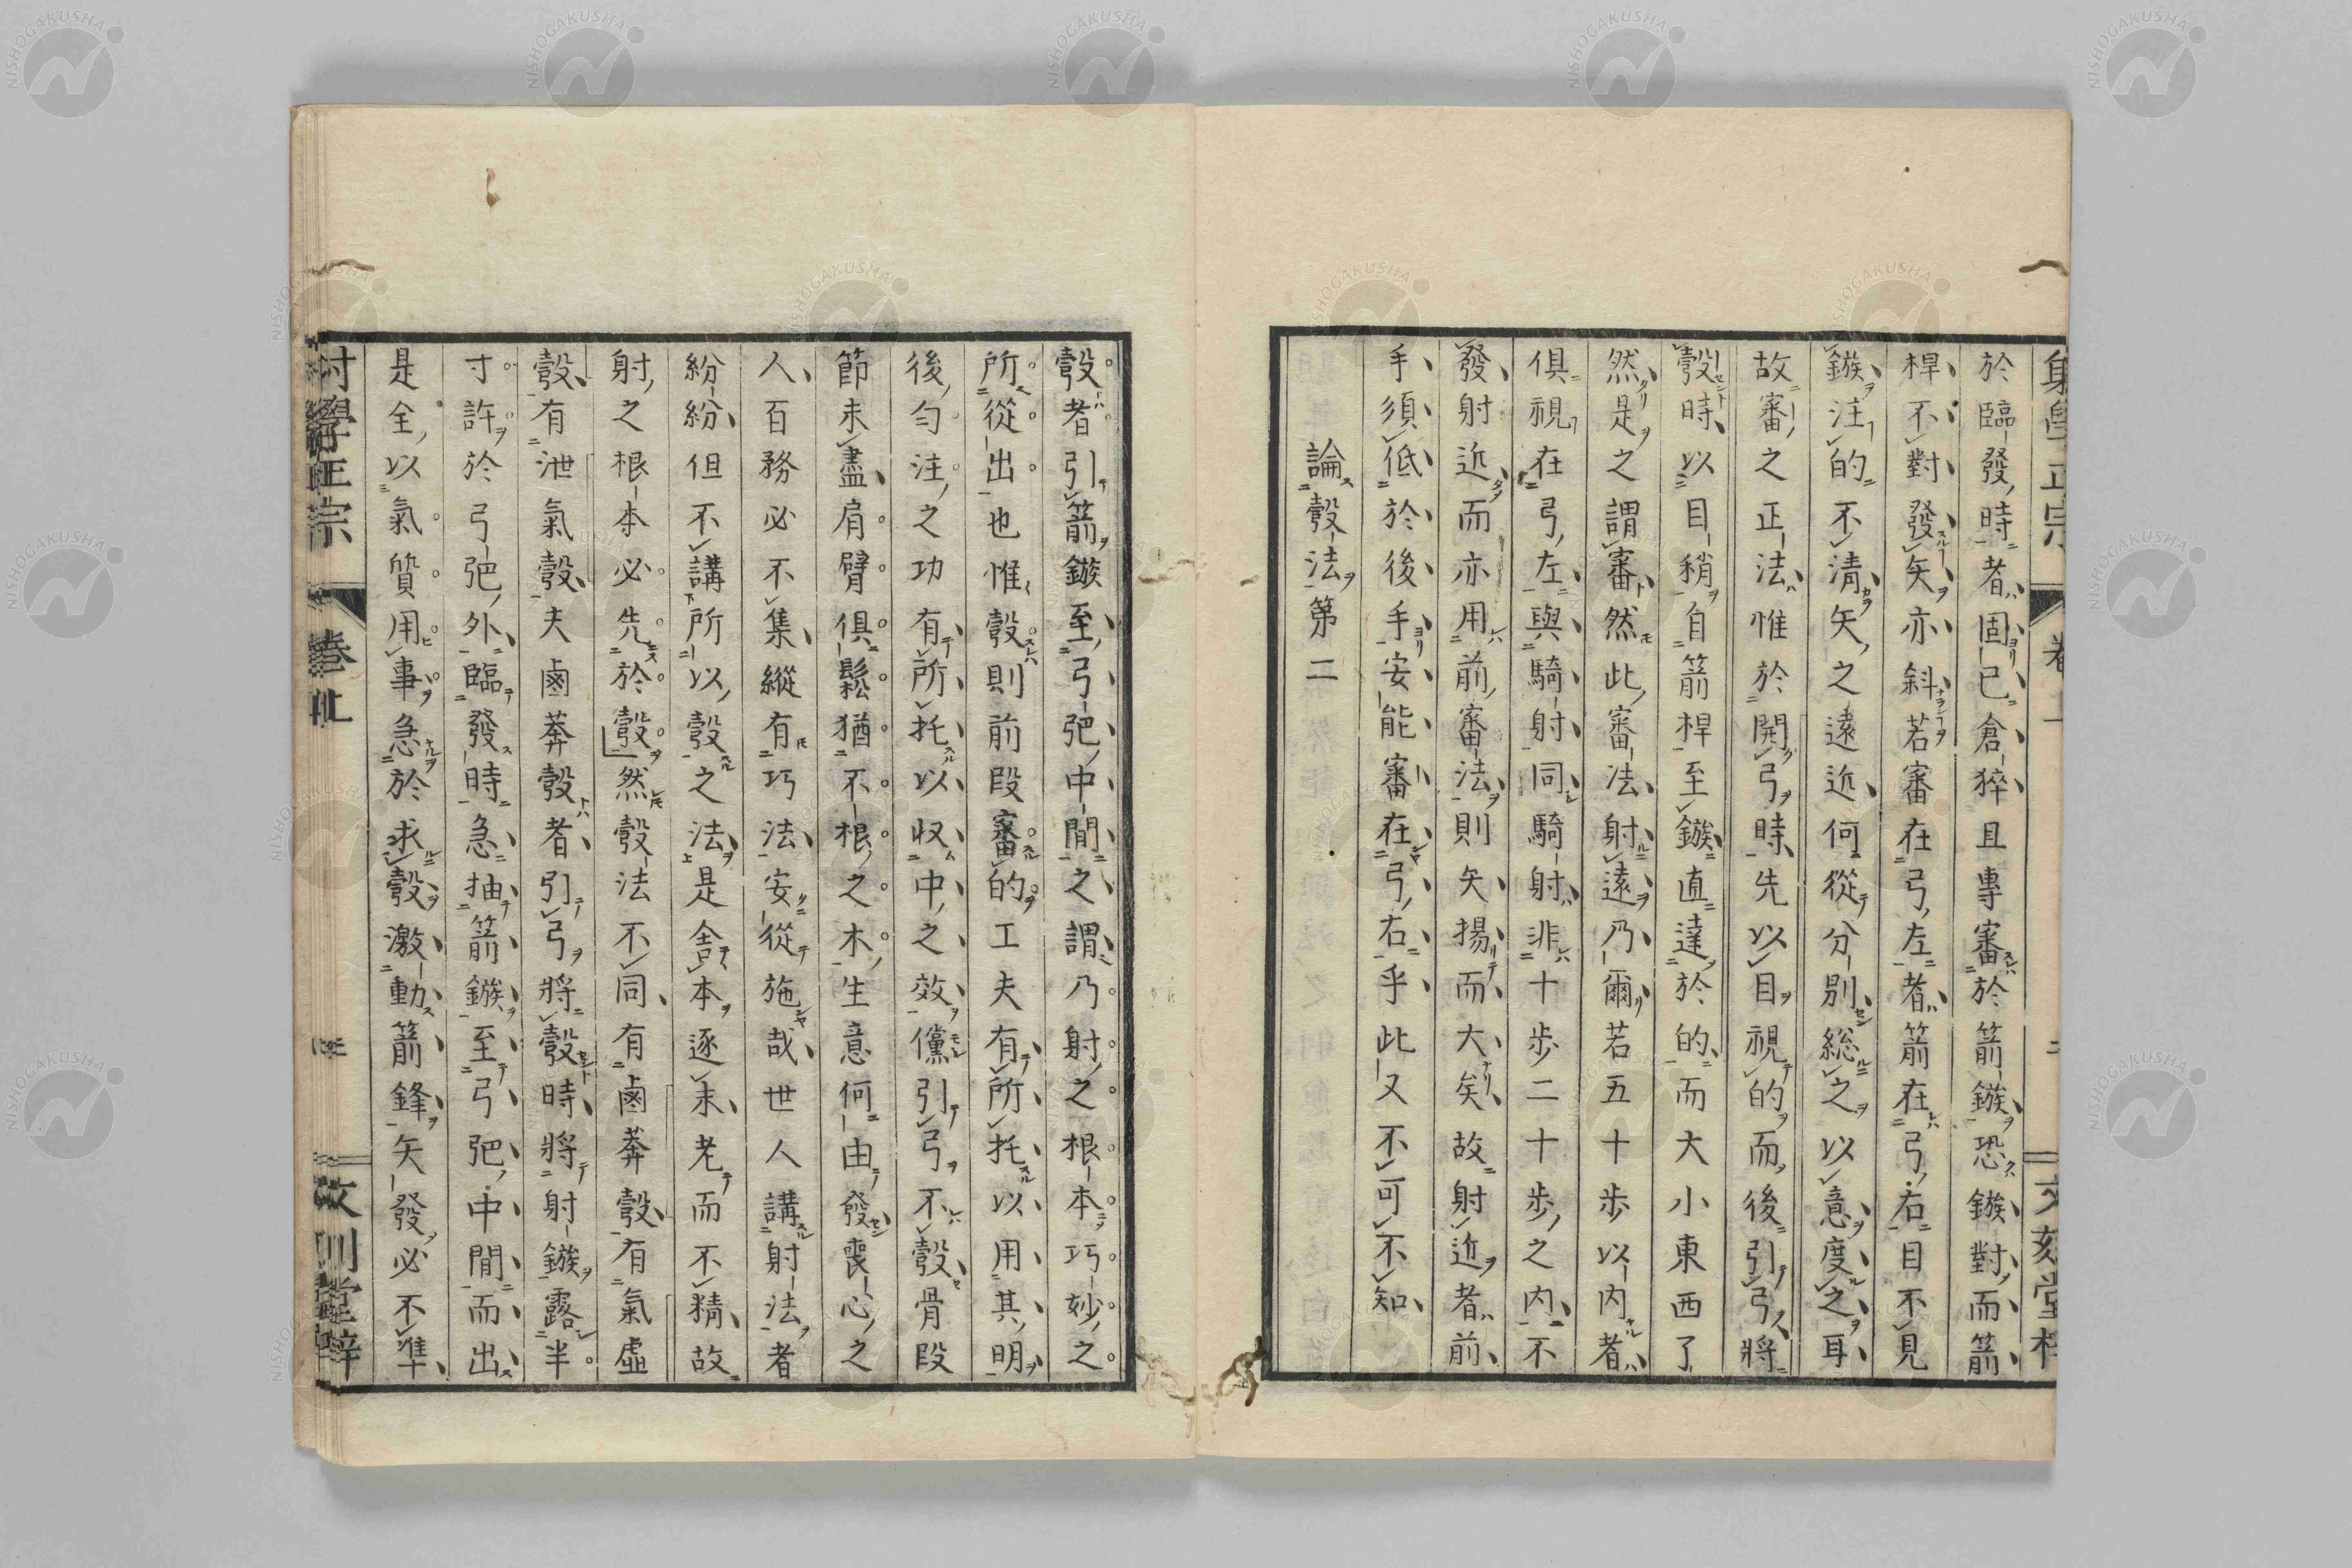 射學正宗 卷上 二
於臨發時者固已倉猝且專審於箭鏃恐鏃對而箭
桿不對發矢亦斜若審在弓左者箭在弓右目不見
鏃注的不清矢之遠近何從分別總之以意度之耳
故審之正法惟於開弓時先以目視的而後引弓將
彀時以目稍自箭桿至鏃直達於的而大小東西了
然是之謂審然此審法射遠乃爾若五十步以内者
俱視在弓左與騎射同騎射非十步二十步之内不
發射近而亦用前審法則矢揚而大矣故射近者前
手須低於後手安能審在弓右乎此又不可不知
論彀法第二
彀者引箭鏃至弓弝中間之謂乃射之根本巧妙之
所從出也惟彀則前段審的工夫有所托以用其明
後勻注之功有所托以收中之效儻引弓不彀骨段
節未盡肩臂俱鬆猶不根之木生意何由發喪心之
人百務必不集縱有巧法安從施哉世人講射法者
紛紛但不講所以彀之法是舍本逐末老而不精故
射之根本必先於彀然彀法不同有鹵莽彀有氣虛
彀有泄氣彀夫鹵莽彀者引弓將彀時將射鏃露半
寸許於弓弝外臨發時急抽箭鏃至弓弝中間而出
是全以氣質用事急於求彀激動箭鋒矢發必不準
射學正宗
NISHOGAKUSHA